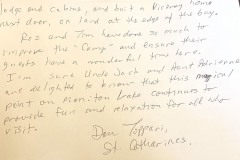 lodge and cabins, and built a Viceroy home
next door, on land at the edge of the bay.
Roz and Tim have done so much to
improve the "Camp" and ensure their
guests have a wonderful time here.
I'm sure Uncle Jack and Aunt Adrienne
are delighted to know that this magical
point on Moniton Lake continues to
provide fun and relaxation for all who
visit.
Don Toppari,
St. Catharines.